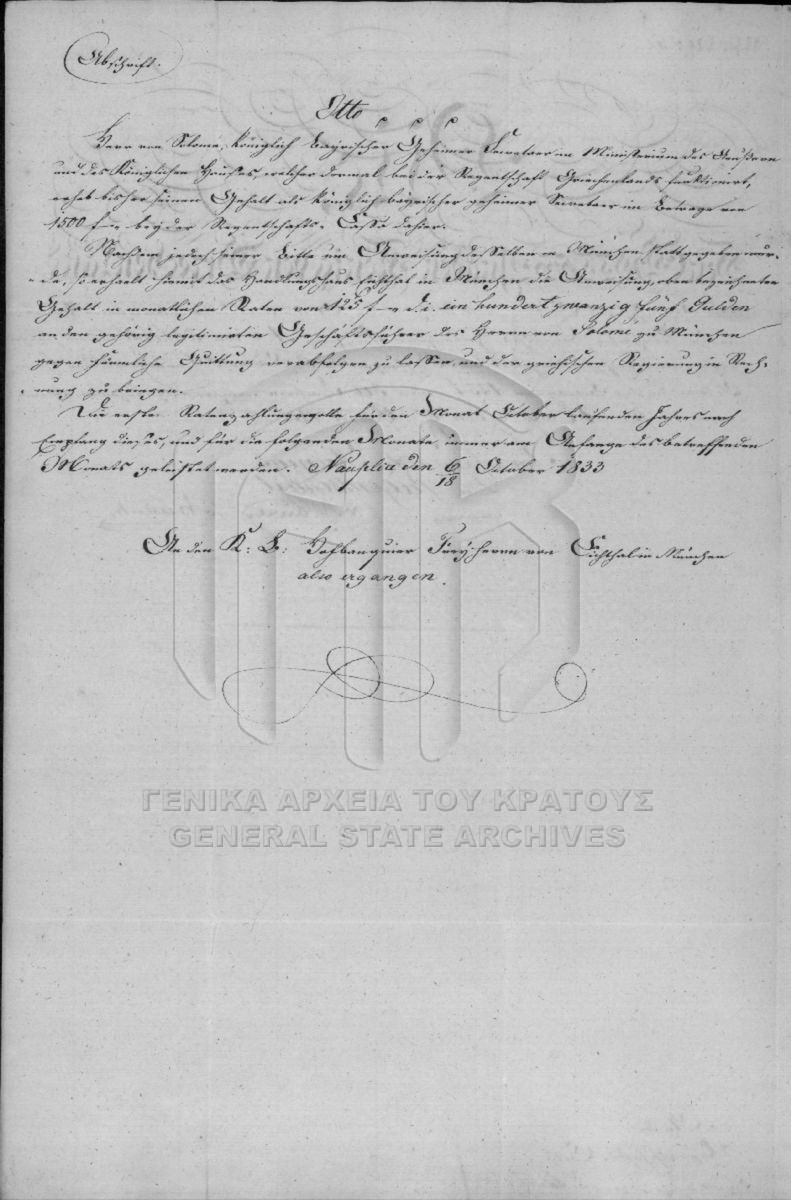 Abschrift.
Otto
Herr von Solomé, Königlich bayrischer Geheimer Secretaer im Ministerium des Aeußern
und des Königlichen Hauses, welcher dermal bei der Regentschaft Griechenlands funktionirt,
erhob bisher seinen Gehalt als königlich bayrischer geheimer Secretaer im Betrage von
1500 f bey der Regentschafts-Cassa dahier.
Nachdem jedoch seiner Bitte um Anweisung desselben in München stattgegeben wur-
de, so erhaelt hiemit das Handlungshaus Eichthal in München die Anweisung, oben bezeichneten
Gehalt in monatlichen Raten von 125 f d. i. ein hundert zwanzig fünf Gulden
an den gehörig legitimirten Geschäftsführer des Herrn von Solomé zu München
gegen förmliche Quittung verabfolgen zu lassen, und der griechischen Regierung in Rech-
nung zu bringen.
Die erste Ratenzahlung wolle für den Monat October laufenden Jahres nach
Empfang dieses, und für die folgenden Monate immer am Anfange des betreffenden
Monats geleistet werden. Nauplia den 6/18 October 1833
An den K: B: Hofbanquier Freyherrn von Eichthal in München
also ergangen.
ΓΕΝΙΚΑ ΑΡΧΕΙΑ ΤΟΥ ΚΡΑΤΟΥΣ
GENERAL STATE ARCHIVES